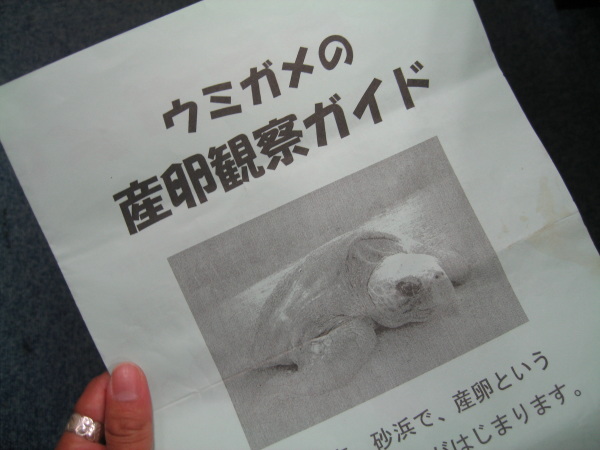 ウミガメの
産卵観察ガイド
砂浜で、産卵という
がはじまります。